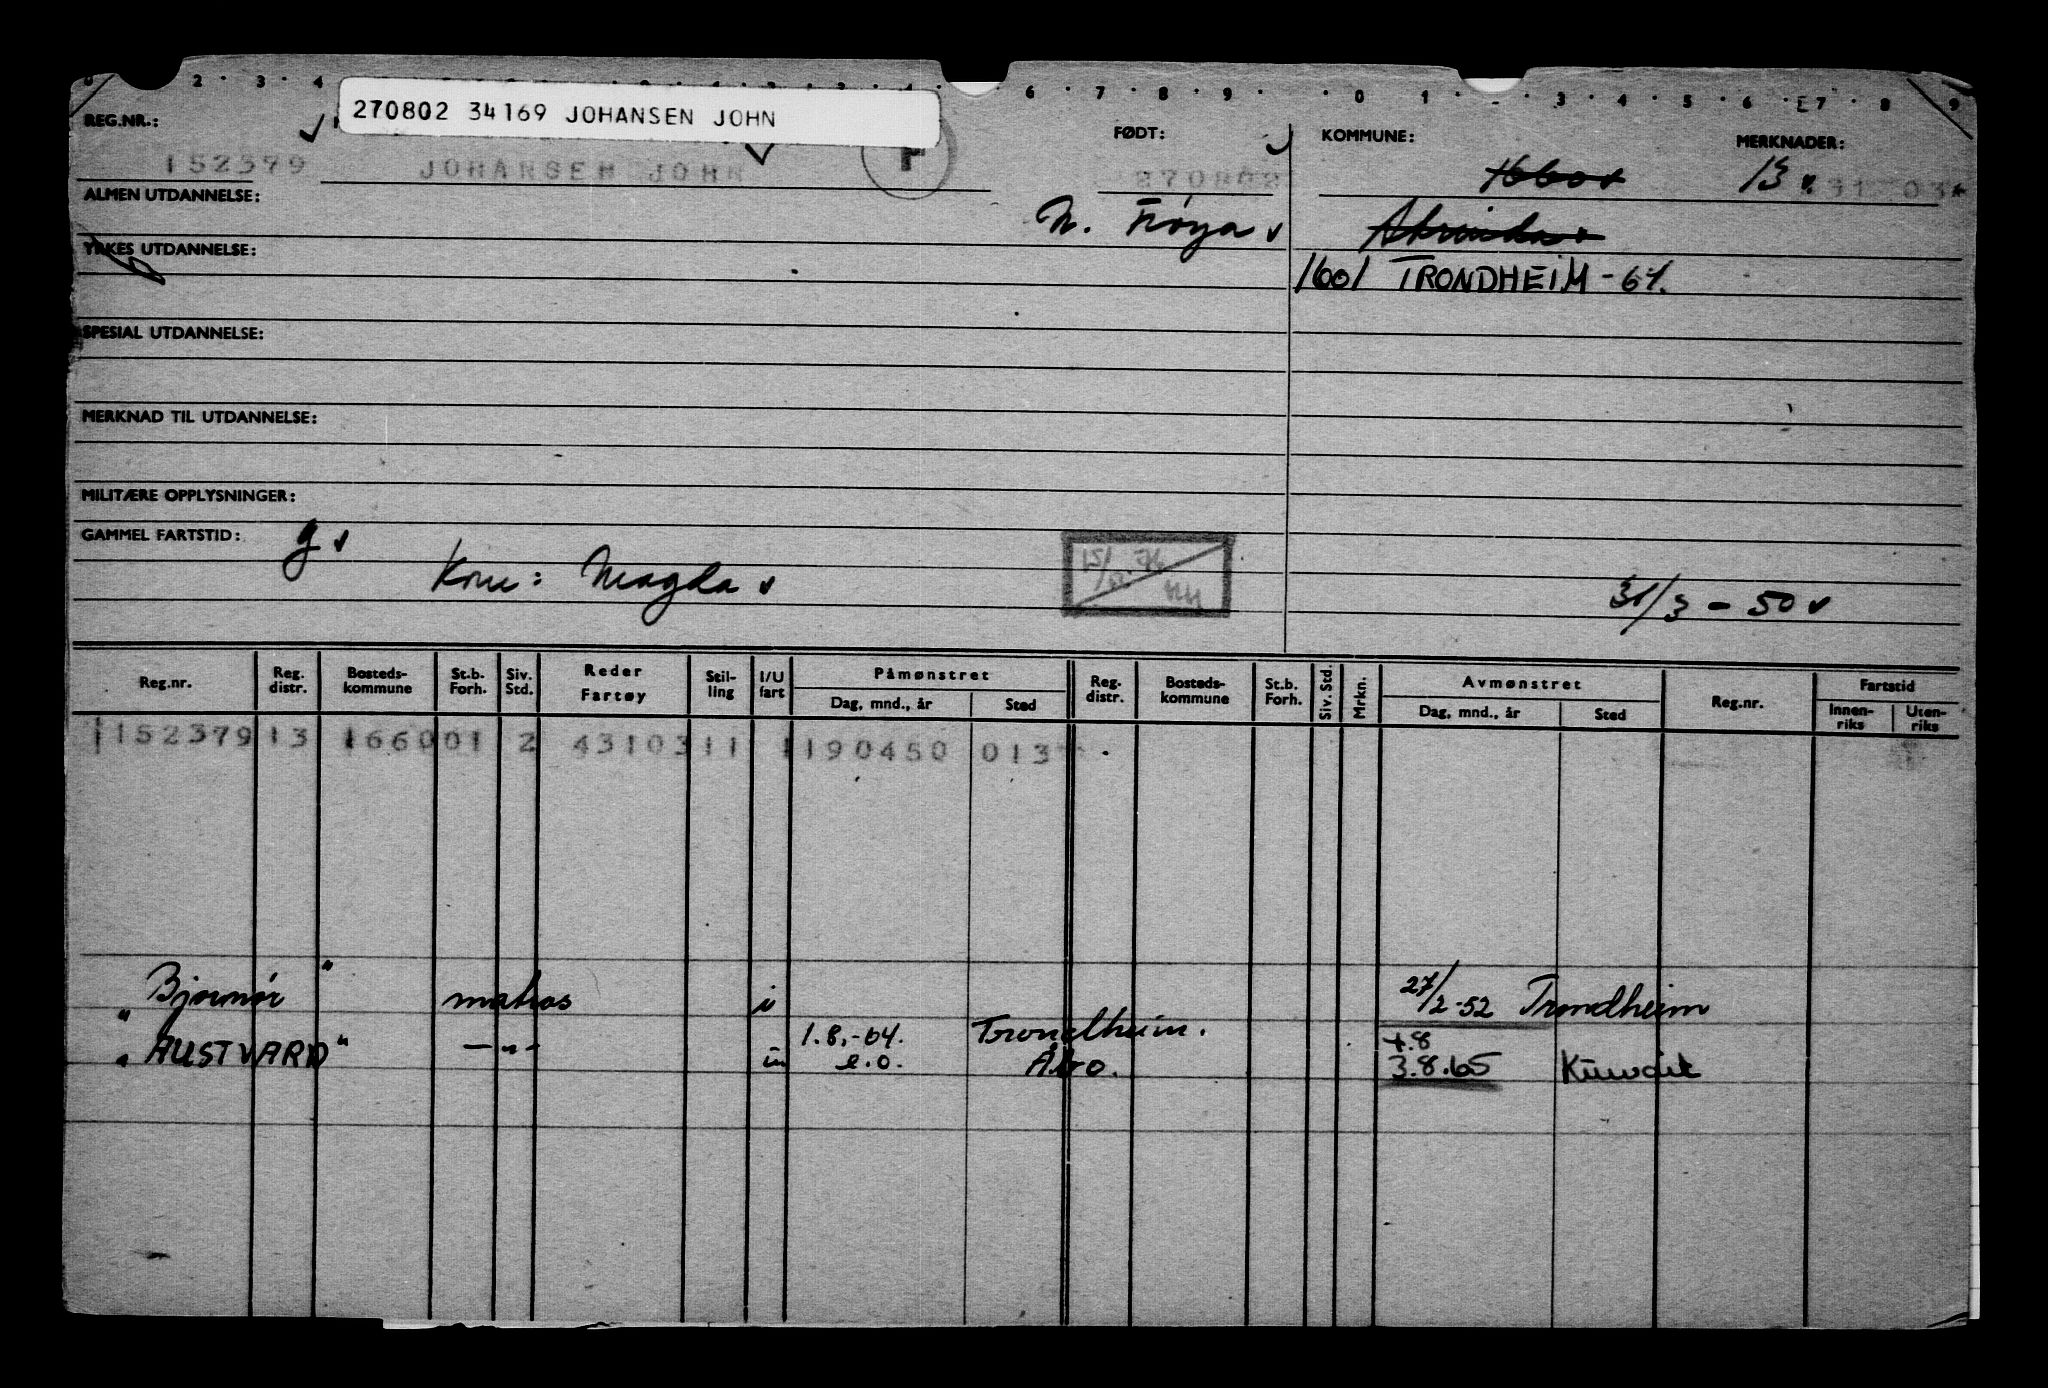 2 3 4 6 7 8 9 0 1 3 4 5 6 7 8 9
270802 34169 JOHANSEN JOHN
REG.NR.: FØDT: KOMMUNE: MERKNADER:
152379 JOHANSEN JOHN F 270802 1660 13
ALMEN UTDANNELSE: N. Frøya Strinda
YRKES UTDANNELSE: 1601 TRONDHEIM - 64.
SPESIAL UTDANNELSE:
MERKNAD TIL UTDANNELSE:
MILITÆRE OPPLYSNINGER:
GAMMEL FARTSTID: g
Kone: Magda 31/3 - 50
Reg.nr. Reg. distr. Bosteds- kommune St.b. Forh. Siv. Std. Reder Fartøy Stil- ling I/U fart Påmønstret Dag, mnd., år Sted Reg. distr. Bosteds- kommune St.b. Forh. Siv. Std. Mrkn. Avmønstret Dag, mnd., år Sted Reg.nr. Fartstid Innen- riks Uten- riks
1152379 13 166001 2 4310311 1190450 013
" Bjørnør " matros i 27/2-52 Trondheim
1.8.-64. Trondheim. +.8
" AUSTVARD " — " — e.o. Åbo. 3.8.65